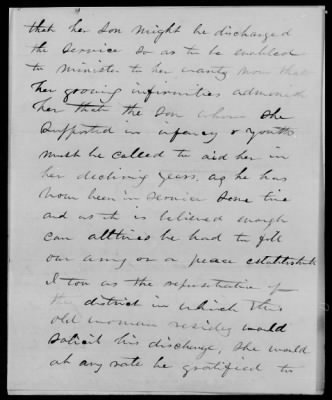 that her son might be discharged
the service so as to be enabled
to minister to her wants now that
her growing infirmities admonish
her that the son whom she
supported in infancy & youth
must be called to aid her in
her declining years. as he has
now been in service some time
and as it is believed enough
can all times be had to fill
our army on a peace establish
I too as the representative of
the district in which this
old woman resides would
solicit his discharge, she would
at any rate be gratified to